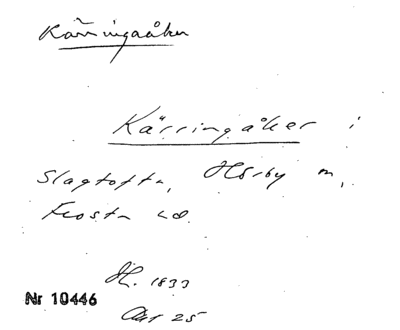 Kärringaåker
Kärringåker i
Slagtofta, Hörby m,
Frosta hd.
H. 1833
Nr 10446
Akt 25